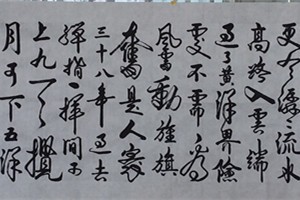 更有潺潺流水
高路入雲端
過了黃洋界險
處不須看
風雷動旌旗
奮是人寰
三十八年過去
彈指一揮間可
上九天攬
月可下五洋